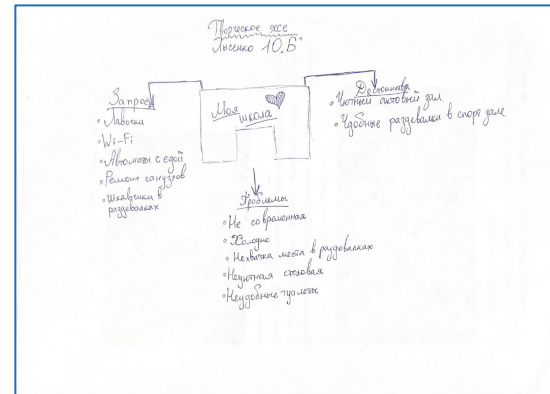 Творческое эссе
Лысенко 10.Б"
Запрос
• Лавочки
• Wi-Fi
• Автоматы с едой
• Ремонт санузлов
• Шкафчики в
раздевалках
Моя
школа
Достоинства
• Уютный актовый зал.
• Удобные раздевалка в спорт зале
Проблемы
• Не современная
• Холодно
• Нехватка места в раздевалках
• Неуютная столовая
• Неудобные туалеты